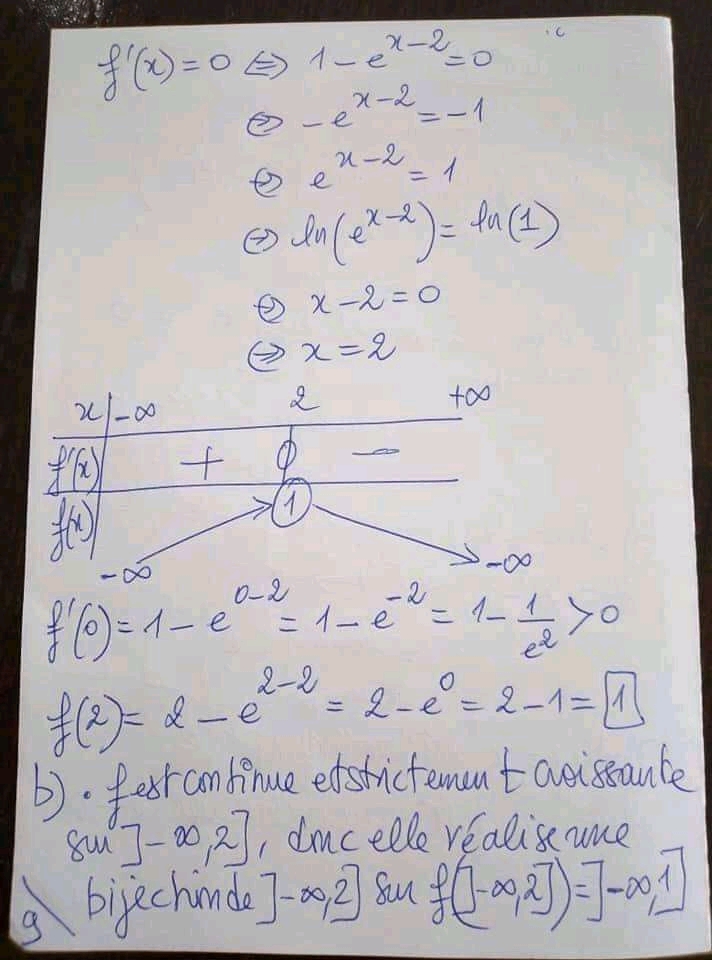 f'(x)=0 ⇔ 1-e^{x-2}=0
⇔ -e^{x-2}=-1
⇔ e^{x-2}=1
⇔ ln(e^{x-2})=ln(1)
⇔ x-2=0
⇔ x=2
x | -∞ 2 +∞
f'(x) + 0 -
f(x) 1
-∞ -∞
f'(0)=1-e^{0-2}=1-e^{-2}=1-\frac{1}{e^2}>0
f(2)=2-e^{2-2}=2-e^0=2-1=1
b) . f est continue et strictement croissante
sur ]-∞,2], donc elle réalise une
bijection de ]-∞,2] sur f(]-∞,2])=]-∞,1]
9